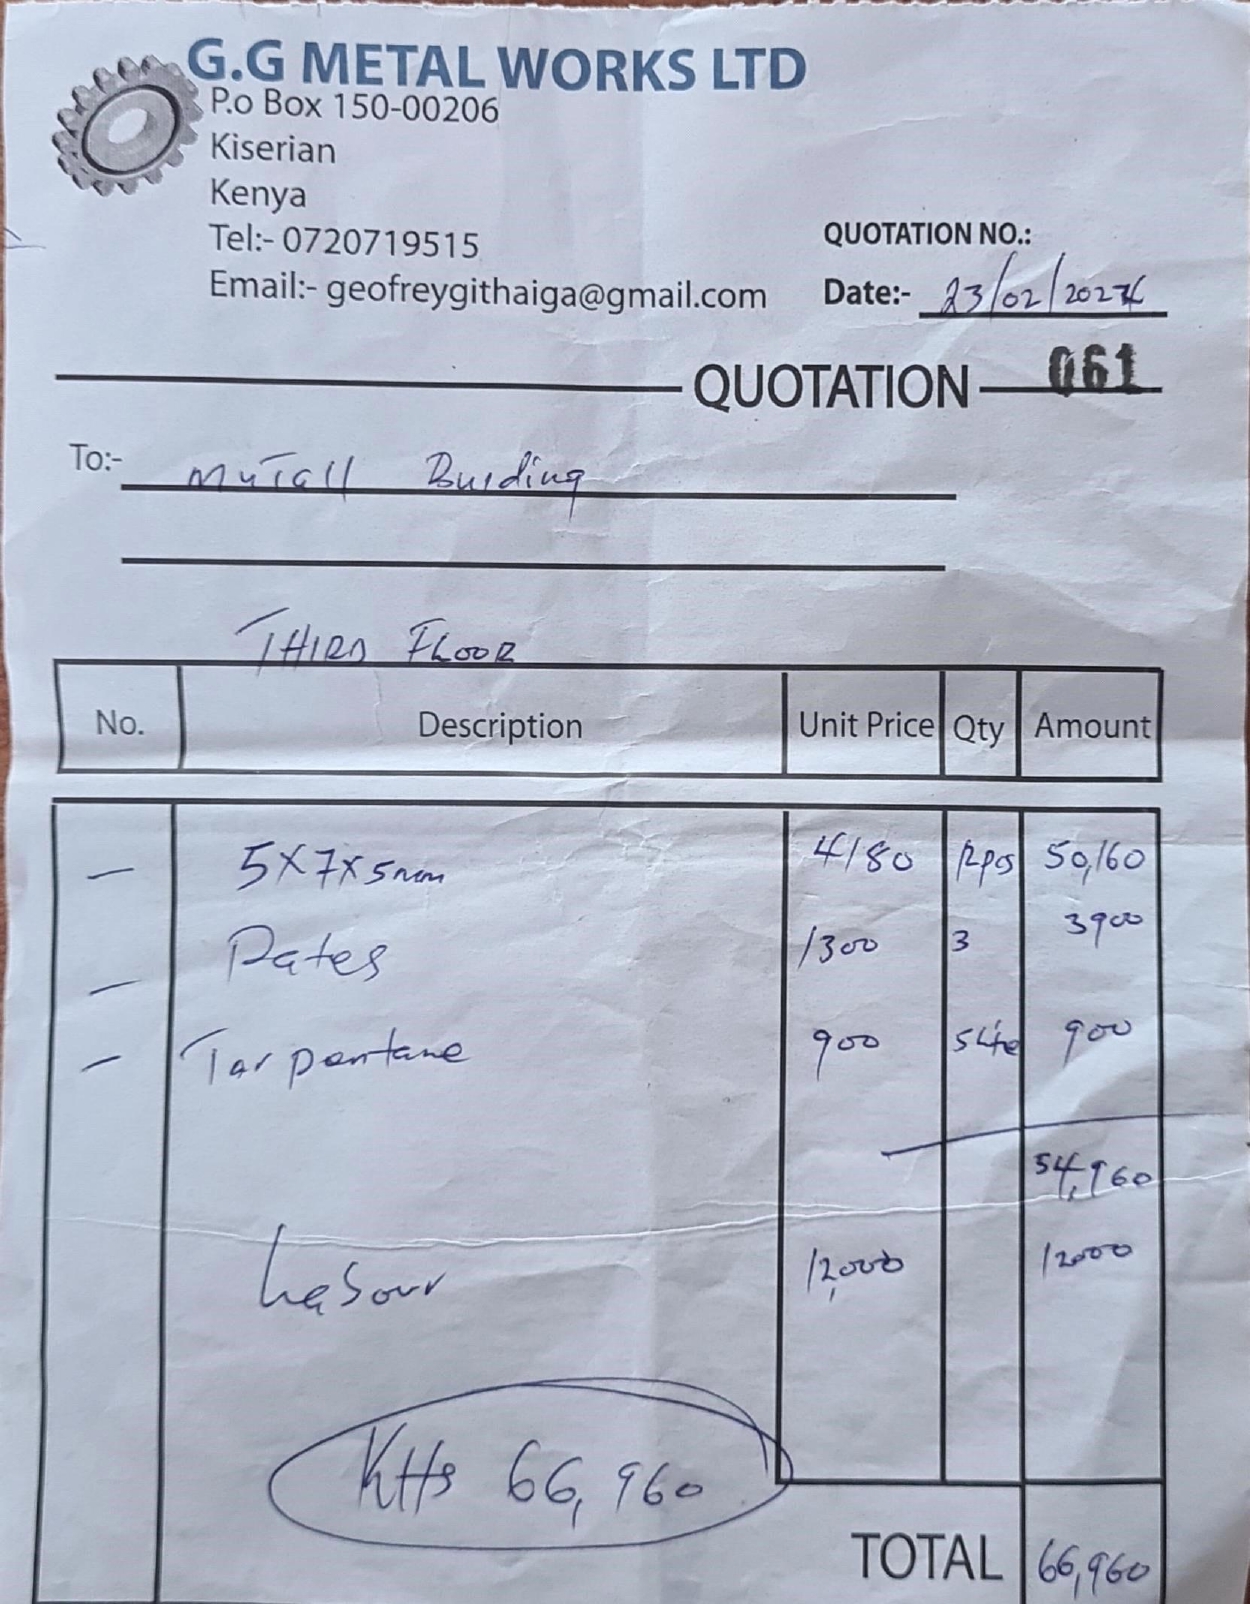 G.G METAL WORKS LTD
P.o Box 150-00206
Kiserian
Kenya
Tel:- 0720719515
Email:- geofreygithaiga@gmail.com
QUOTATION NO.:
Date:- 23/02/202
QUOTATION 061
To:- MuTall Building
THIRD FLOOR
No. Description Unit Price Qty Amount
— 5X7X5mm 4180 12pcs 50,160
— Pates 1300 3 3900
— Tarpentane 900 5Lte 900
54,960
Labour 12,000 12000
KHs 66,960
TOTAL 66,960